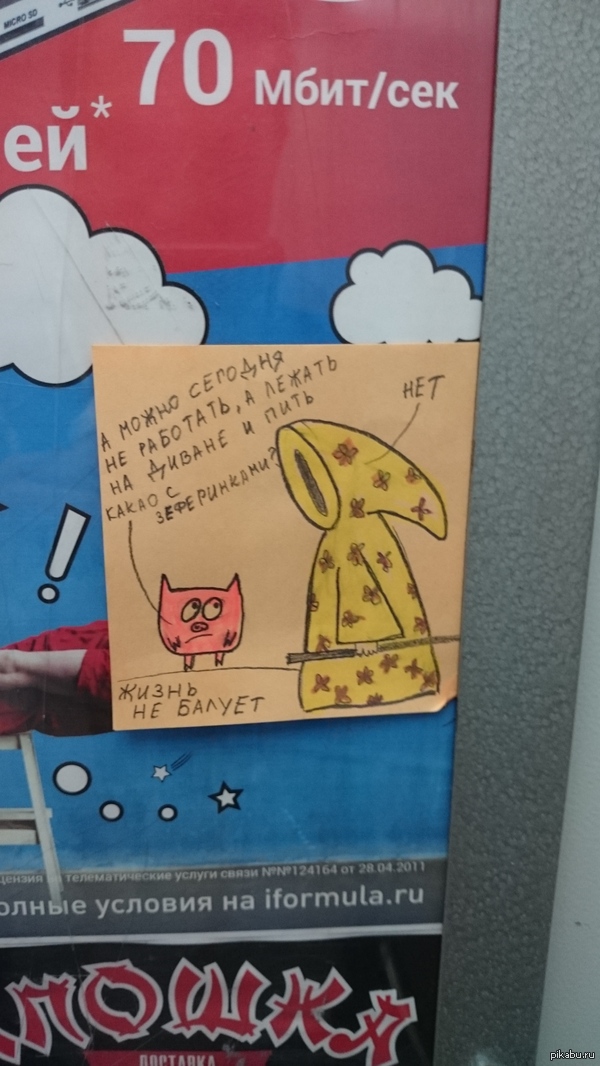 MICRO SD
70 Мбит/сек
ей*
А МОЖНО СЕГОДНЯ
НЕ РАБОТАТЬ, А ЛЕЖАТЬ
НА ДИВАНЕ И ПИТЬ
КАКАО С
ЗЕФЕРИНКАМИ?
НЕТ
!
ЖИЗНЬ
НЕ БАЛУЕТ
цензия на телематические услуги связи №№124164 от 28.04.2011
олные условия на iformula.ru
ЛОШКА
ДОСТАВКА
pikabu.ru